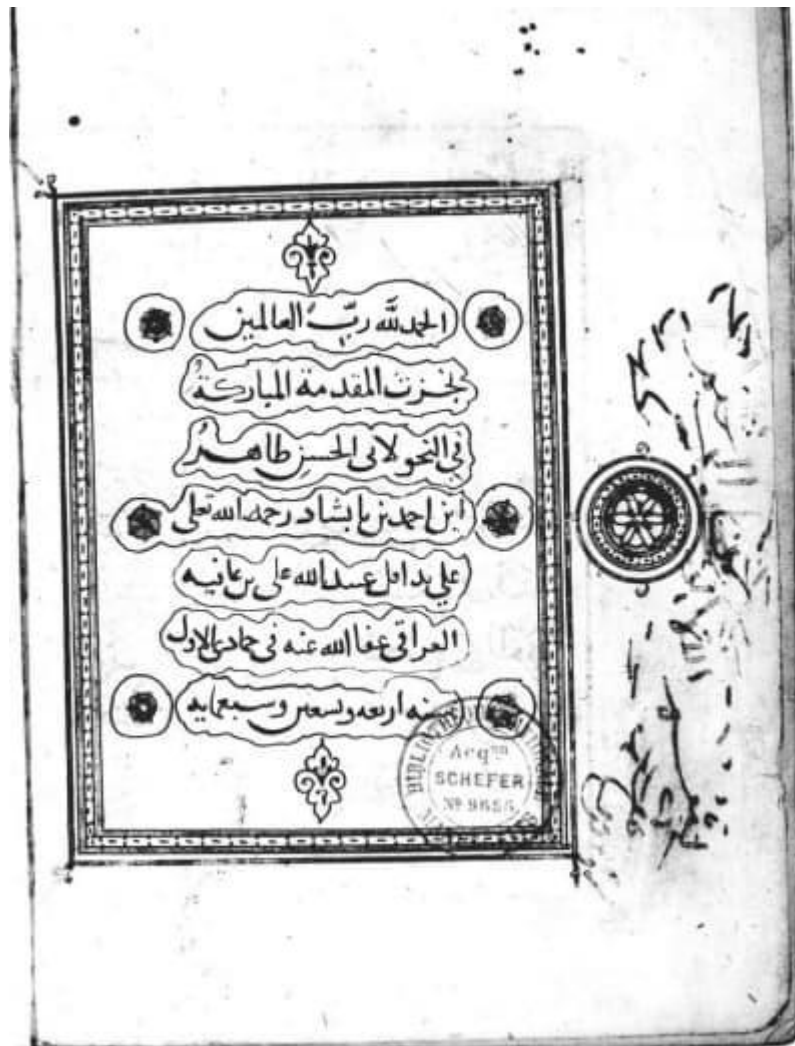 الحمد لله ربّ العالمين
نجزت المقدمة المباركة
في النحو لابي الحسن طاهر
ابن احمد بن بابشاد رحمه الله تعلى
علي يد اقل عبيد الله علي بن
العراقي عفا الله عنه في جمادى الاول
سنه اربعه وتسعين وسبعمايه
Acq^on
SCHEFER
Nº 9656